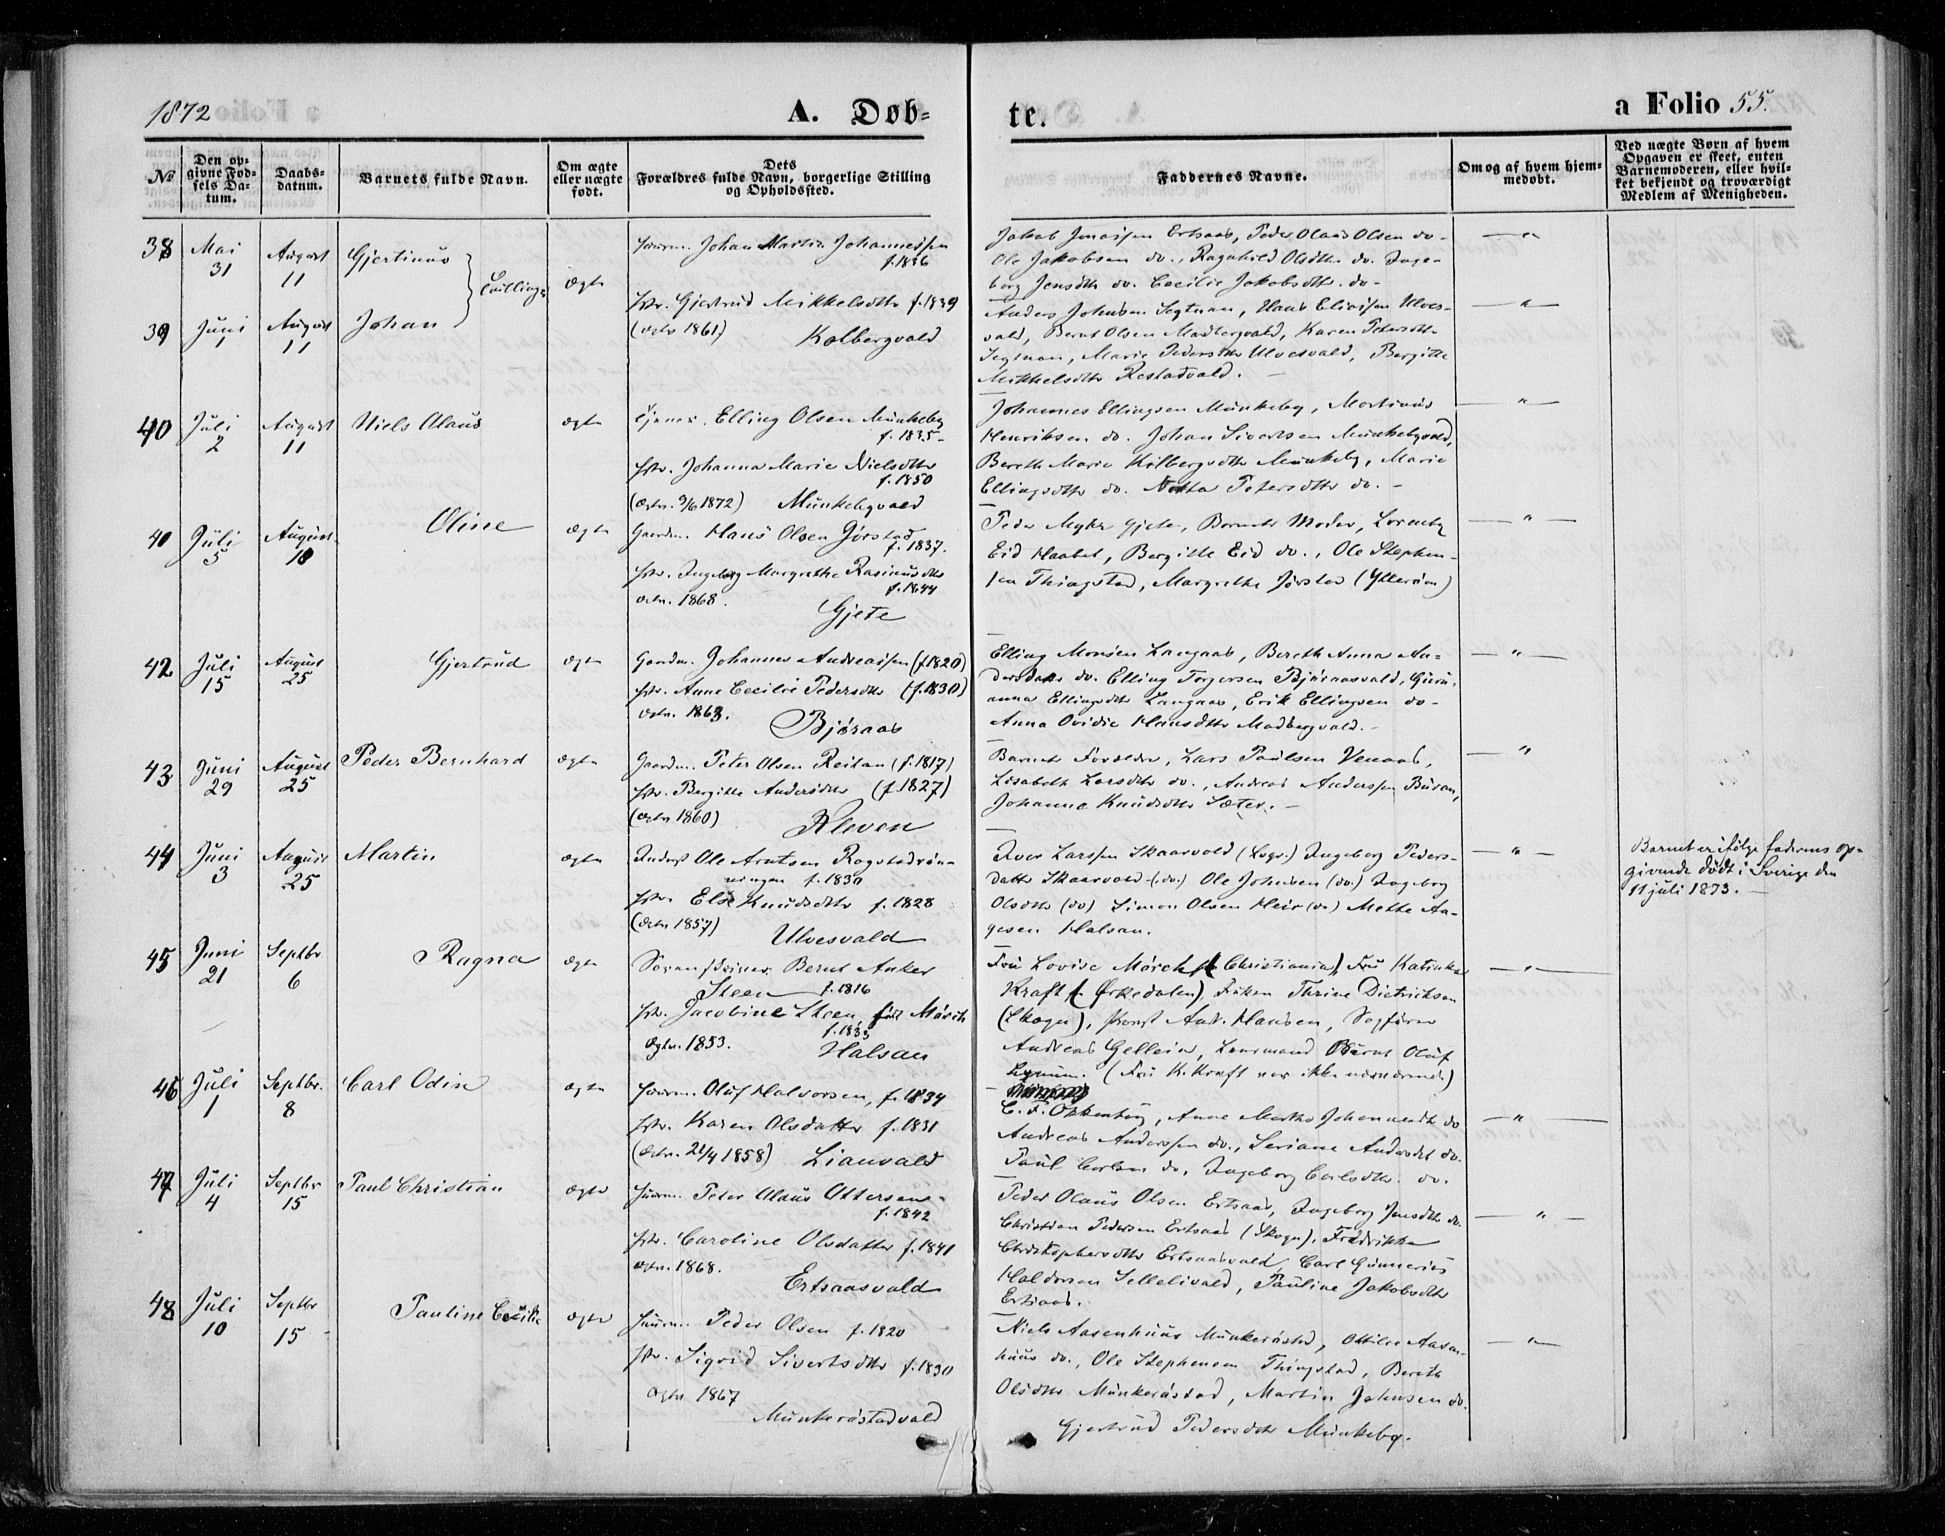 1872
A. Døb=
te.
a Folio 55.
No
Den op=
givne Fød=
sels Da=
tum.
Daabs=
datum.
Barnets fulde Navn.
Om ægte
eller uægte
født.
Dets
Forældres fulde Navn, borgerlige Stilling
og Opholdssted.
Faddernes Navne.
Om og af hvem hjem=
medøbt.
Ved uægte Børn af hvem
Opgaven er skeet, enten
Barnemoderen, eller hvil=
ket bekjendt og troværdigt
Medlem af Menigheden.
38 Mai 31 August 11 Gjertinus
Tvillinger
ægte
Johan Martin Johannessen
f. 1836
Gjertrud Mikkelsdtr f. 1839
(ægtev. 1861) Kolbergvald
Jakob Jonassen Ertsaas, Peder Olaus Olsen do-
Ole Jakobsen do., Ragnhild Olsdtr do. Inge-
borg Jensdtr do. Cecilie Jakobsdtr. do-
39 Juni 1 August 11 Johan
Anders Johnsen Segtnan, Hans Eliasen Ulves-
vald, Bernt Olsen Madbergvald, Karen Pedersdtr
Segtnan, Marie Pedersdtr Ulvesvald, Bergitte
Mikkelsdtr Restadvald. -
40 Juli 2 August 11 Niels Olaus ægte
Elling Olsen Munkeby
f. 1835-
Johanna Marie Nielsdtr
f. 1850
(ægtev. 9/6 1872) Munkebyvald
Johannes Ellingsen Munkeby, Martinus
Henriksen do. Johan Sivertsen Munkebyvald,
Bereth Marie Kilbergsdtr Munkeby, Marie
Ellingsdtr do. Netta Petersdtr do. -
40 Juli 5 August 18 Oline ægte
Gaardm. Hans Olsen Jørstad
f. 1837.
Ingeborg Margrethe Rasmusdtr
f. 1844
ægtev. 1868. Gjete
Peder Myhr Gjete, Barnets Moder, Lorents
Eid Haabet, Bergitte Eid do., Ole Stephen-
sen Thingstad, Margrethe Jørstad (Ytterøen)
42 Juli 15 August 25 Gjertrud ægte
Gaardm. Johannes Andreassen (f. 1820)
Anne Cecilie Pedersdtr (f. 1830)
ægtev. 1863. Bjøraas
Elling Monsen Langaas, Bereth Anna An=
dersdatter do. Elling Torgersen Bjøraasvald, Guru-
anna Ellingsdtr Langaas, Erik Ellingsen do-
Anna Ovidie Hansdtr Madbergvald. -
43 Juni 29 August 25 Peder Bernhard ægte
Gaardm. Peter Olsen Reitan (f. 1817)
Bergitte Andersdtr (f. 1827)
(ægtev 1860) Kleven
Barnets Forældre, Lars Paulsen Venaas,
Lisabeth Larsdtr do., Andreas Anderssen Buran,
Johanna Knudsdtr Sæter. -
44 Juni 3 August 25 Martin ægte
Inderst Ole Arntsen Rogstadrøn-
ningen f. 1830
Else Knudsdtr f. 1828
(ægtev 1857) Ulvesvald
Iver Larssen Skaarvold (Logs.) Ingeborg Peders-
datter Skaarvold (do.) Ole Johnsen (do.) Ingeborg
Olsdtr (do) Simon Olsen Heir (do) Mette Aa-
gesen Halsan.
Barnet er ifølge faderens op=
givende dødt i Sverige den
11 juli 1873. -
45 Juni 21 Septbr 6 Ragna ægte
Sorenskriver Bernt Anker
Steen f. 1816
Jacobine Steen, født Mørch
f. 1833
ægtev. 1853. Halsan
Fru Lovise Mørch (Christiania), Fru Katinka
Kraft (Ørkedalen), Frøken Thrine Dietrichson
(Skogn), Provst Ant. Hansen, Sagfører
Andreas Gellein, Lensmand Bernt Oluf
Lynum. (Fru K. Kraft var ikke nærværende)
46 Juli 1 Septbr. 8 Carl Odin ægte
Oluf Halvorsen, f. 1834
Karen Olsdatter f. 1831
(ægtev. 24/4 1858) Lianvald
C. F. Okkenhoug, Anne Martha Johannesdtr do
Andreas Anderssen do., Seriane Andersdtr do.
Paul Carlsen do, Ingeborg Carlsdtr. do.
47 Juli 4 Septbr 15 Paul Christian ægte
Peter Olaus Ottersen
f. 1842
Caroline Olsdatter f. 1841
ægtev. 1868. Ertsaasvald
Peder Olaus Olsen Ertsaas, Ingeborg Jensdtr do.
Christian Pedersen Ertsaas (Skogn), Fredrikke
Christophersdtr Ertsaasvald, Carl Gunnerius
Haldorsen Sellelivald, Pauline Jakobsdtr
Ertsaas.
48 Juli 10 Septbr 15 Pauline Cecilie ægte
Peder Olsen f. 1820
Sigrid Sivertsdtr f. 1830
ægtev 1867
Munkerøstadvald
Niels Aasenhuus Munkerøstad, Ottilie Aasen-
huus do., Ole Stephensen Thingstad, Bereth
Olsdtr Munkerøstad, Martin Johnsen do.
Gjertrud Pedersdtr Munkeby.